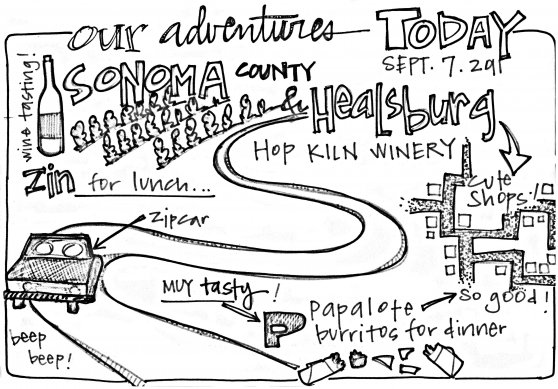 our adventures TODAY
SEPT. 7. 291
wine tasting!
SONOMA COUNTY
& Healsburg
HOP KILN WINERY
Zin for lunch...
cute
shops!
zipcar
MUY tasty!
P
Papalote
burritos for dinner
so good!
beep
beep!